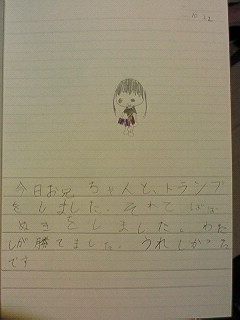 今日お兄ちゃ人と、トランプ
をしました。それで ばば
ぬきをしました。わた
しが勝てました。うれしかった
です